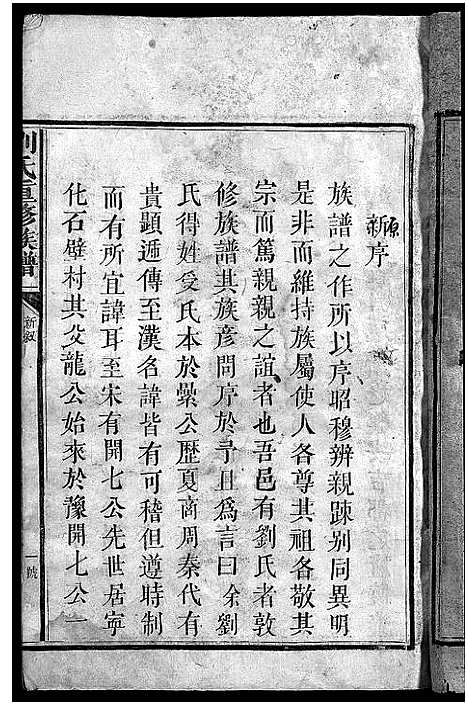 原新序
族譜之作所以序昭穆辨親踈别同異明
是非而維持族屬使人各尊其祖各敬其
宗而篤親親之誼者也吾邑有劉氏者敦
修族譜其族彦問序於予且爲言曰余劉
氏得姓受氏本於纍公歷夏商周秦代有
貴顯遞傳至漢名諱皆有可稽但遵時制
而有所宜諱耳至宋有開七公先世居寧
化石壁村其父龍公始來於豫開七公一
劉氏重修族譜
新叙
一號